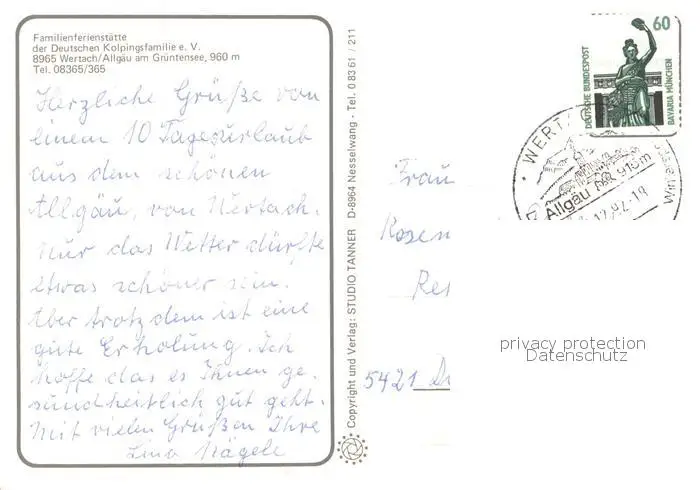 Familienferienstätte
der Deutschen Kolpingsfamilie e. V.
8965 Wertach/Allgäu am Grüntensee, 960 m
Tel. 08365/365
Herzliche Grüße von
einem 10 Tagesurlaub
aus dem schönen
Allgäu, von Wertach.
Nur das Wetter dürfte
etwas schöner sein.
Aber trotzdem ist eine
gute Erholung. Ich
hoffe das es Ihnen ge.
sundheitlich gut geht.
Mit vielen Grüßen Ihre
Lina Nägele
Copyright und Verlag: STUDIO TANNER D-8964 Nesselwang - Tel. 0 83 61 / 211
60
DEUTSCHE BUNDESPOST
BAVARIA MÜNCHEN
WERTA
Allgäu 915m
92-18
Frau
Rosen
Res
5421
privacy protection
Datenschutz